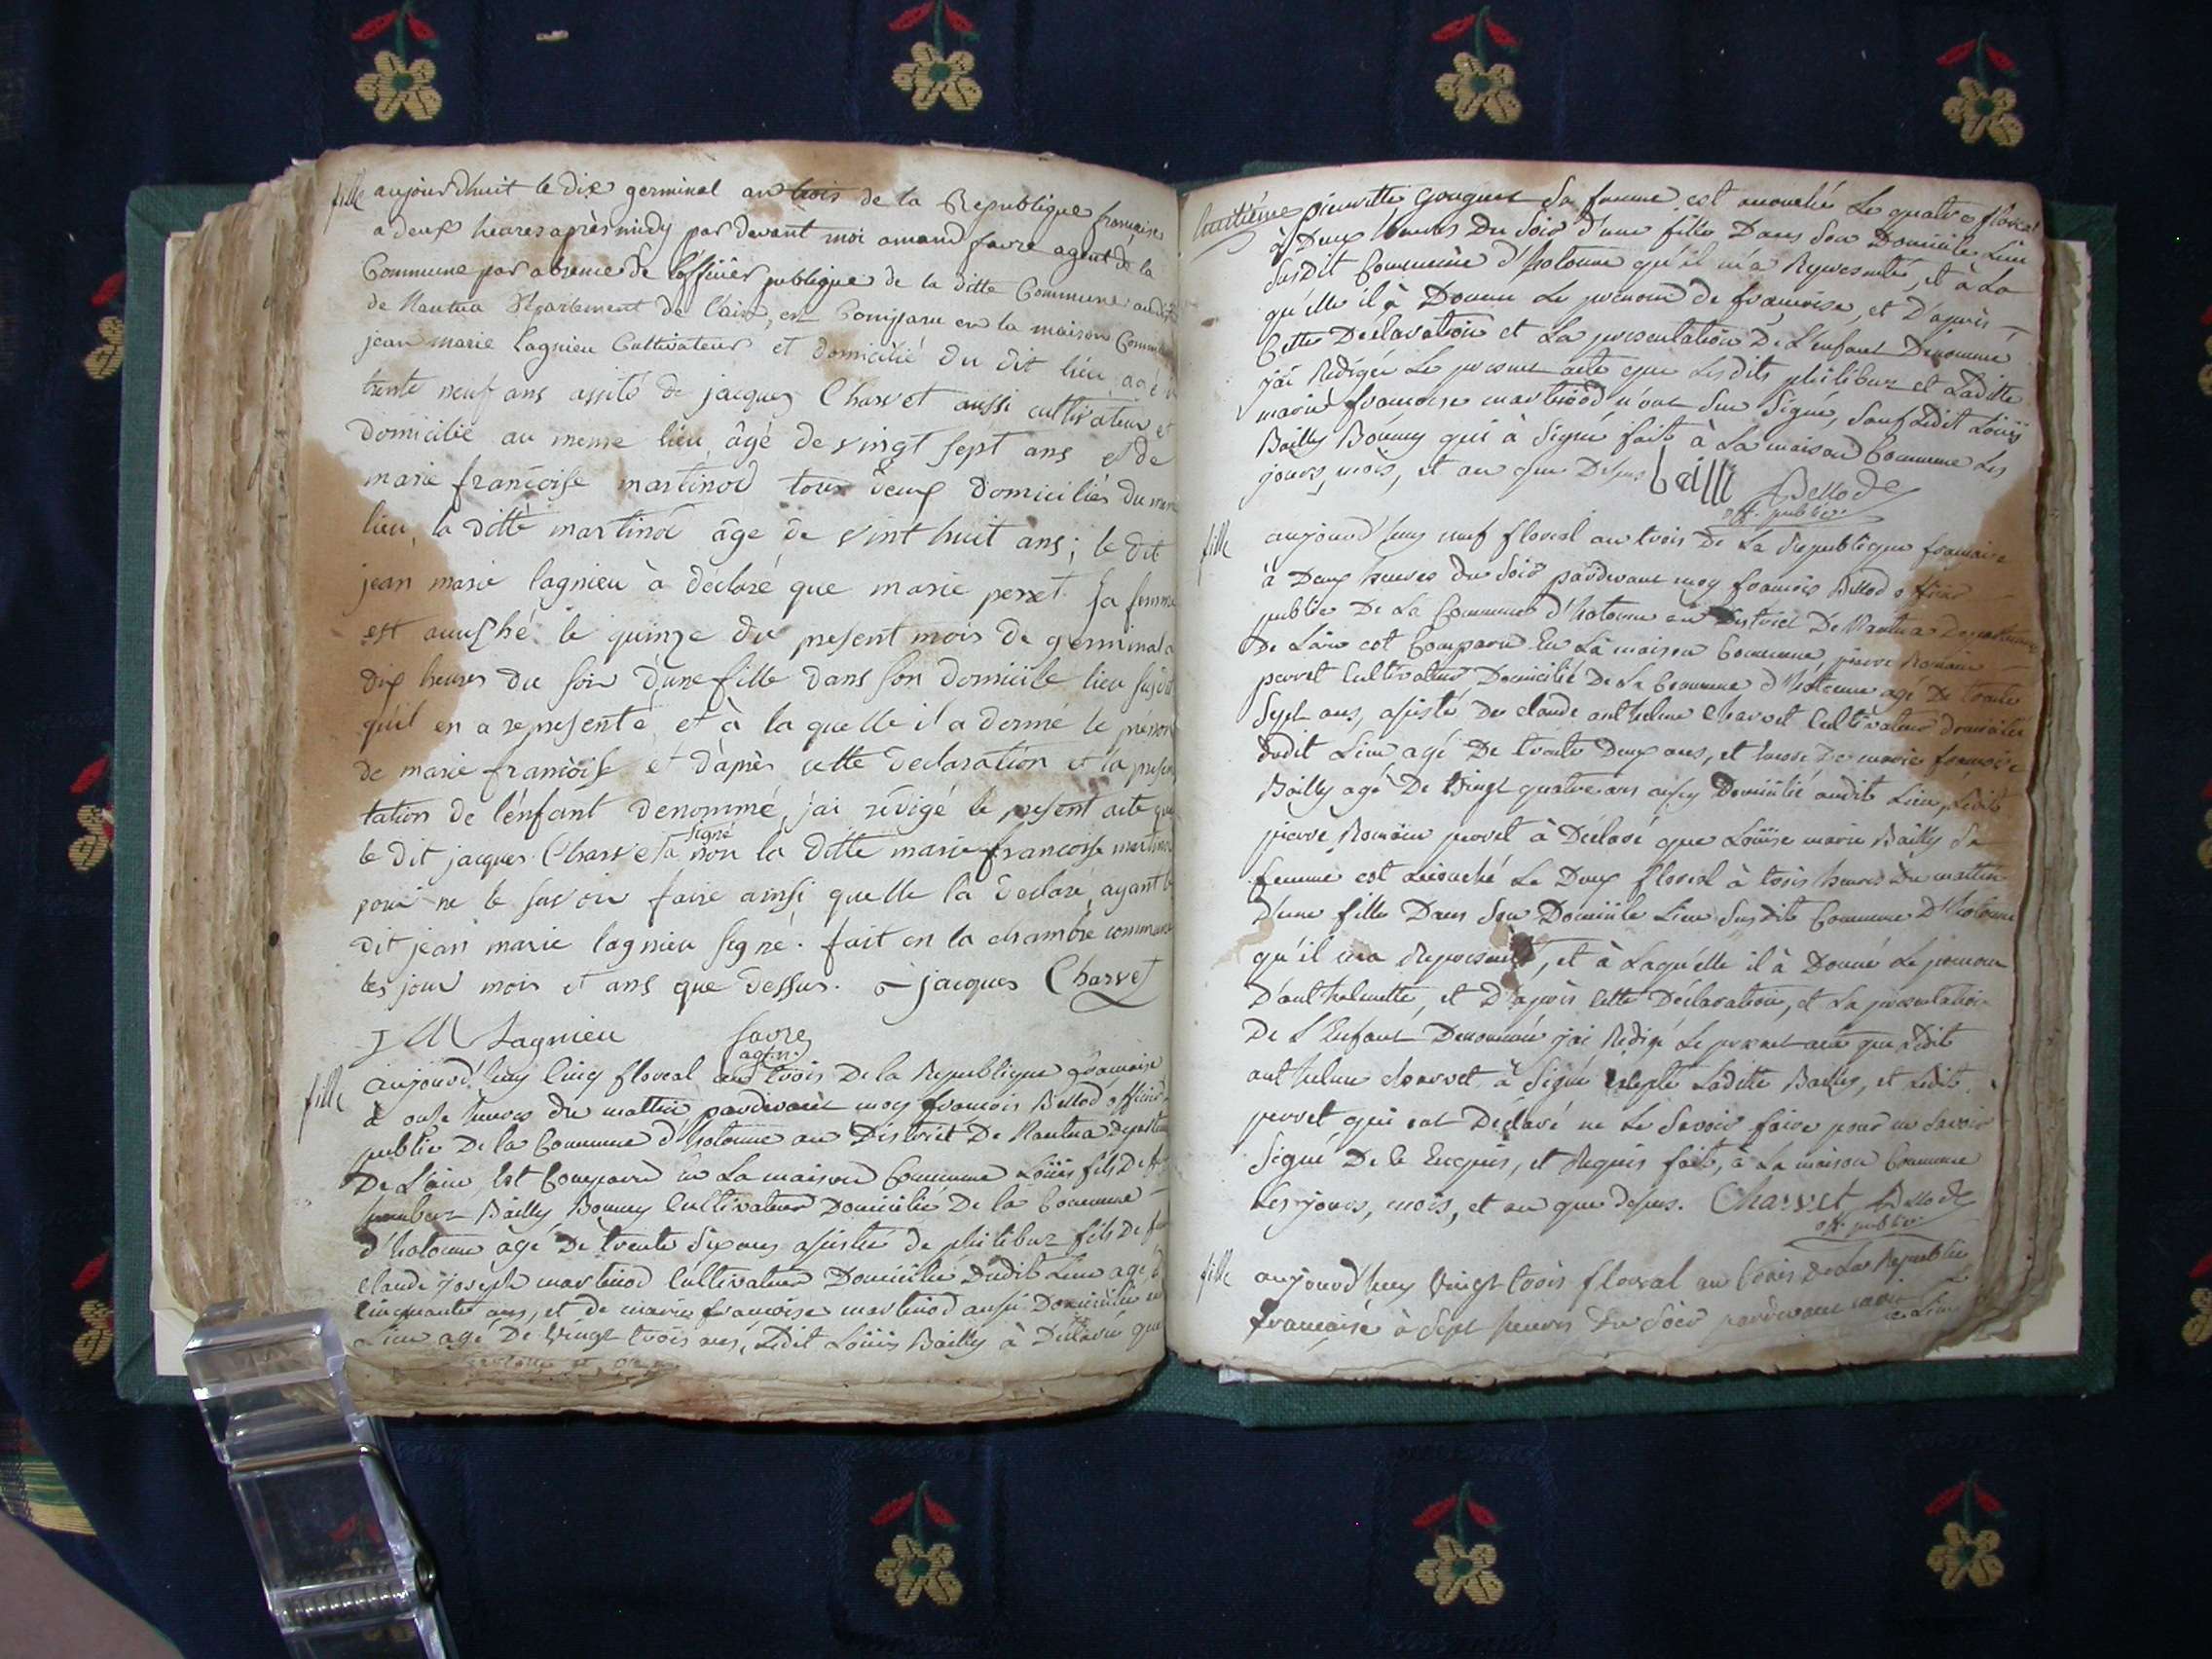 fille aujourdhuit le dix germinal an trois de la Republique françaises
a deux heures après midy par devant moi amand favre agent de la
Commune par absence de l'officier publique de la ditte Commune au
de Nantua Département de l'ain, est Comparu en la maison Commune
jean marie lagnieu Cultivateur et domicilié du dit lieu agé
trente neuf ans assité de jacques Charvet aussi cultivateur et
Domicilié au meme lieu âgé de vingt sept ans et de
marie françoise martinod tous deux domiciliés du
lieu, la ditte martinod âgé de vint huit ans; le dit
jean marie lagnieu à déclaré que marie perret sa femme
est auuché le quinze du present mois de germinal a
dix heures du soir d'une fille dans son domicile lieu susdit
qu'il en a représenté et à la quelle il a donné le prénom
de marie françoise et d'après cette declaration et la presen
tation de l'enfant denommé, jai rédigé le present acte que
le dit jacques Charvet a signé non la ditte marie françoise martinod
pour ne le savoir faire ainsi quelle la declaré, ayant le
dit jean marie lagnieu signé. fait en la chambre commune
les jour mois et ans que dessus. jacques Charvet
J M Lagnieu favre
agt.n.
fille aujourd'huy Cinq floreal an trois De la Republique francaise
à onze heures du mattin pardevant moy francois Bellod officier
public De la Commune d'hotonne au District De Nantua Departem
De L'ain, Est Comparu en La maison Commune Louis fils De
humbert Bailly Bouncy Cultivateur Domicilié De la Commune
d'hotonne âgé De trente Six ans assisté de philibert fils de
Claude joseph martinod Cultivateur Domicilié Dudit Lieu agé
Cinquante ans, et de marie francoise martinod aussi Domicilié
Lieu agé De Vingt trois ans, Ledit Louis Bailly à Declaré que
huitième pierrette Gouguet Sa femme est accouché Le quatre floreal
à Deux heures Du Soir d'une fille Dans Son Domicile Lieu
Susdit Commune d'hotonne qu'il m'a Representé, et à La
qu'elle il à Donné Le prénom de françoise, et D'après
Cette Declaration et La presentation De L'enfant Denommé
j'ai Redigée Le present acte que Lesdits philibert et Laditte
marie francoise martinod n'ont Su Signé, Sauf Ledit Louis
Bailly Bouncy qui à Signé fait à La maison Commune Les
jours, mois, et an que Dessus bailli Bellod
off. public
fille aujourd'huy neuf floreal an trois De La Republique francaise
à Deux heures du Soir pardevant moy francois Bellod officier
public De La Commune d'hotonne au District De Nantua Departement
De L'ain est Comparu En La maison Commune pierre Romain
perret Cultivateur Domicilié De La Commune d'hotonne agé De trente
Sept ans, assisté De claude anthelme Charvet Cultivateur domicilié
dudit Lieu agé De trente Deux ans, et de marie francoise
Bailly agé De Vingt quatre ans aussy Domicilié audit Lieu, Ledit
pierre Romain perret à Déclaré que Louise marie Bailly Sa
femme est accouché Le Deux floreal à trois heures Du mattin
D'une fille Dans Son Domicile Lieu Susdit Commune D'hotonne
qu'il m'a Representé, et à Laquelle il à Donné Le prenom
D'anthelmette, et D'après Cette Déclaration, et La presentation
De L'Enfant Denommé j'ai Redigé Le present acte que Ledit
anthelme charvet à Signé Laditte Bailly, et Ledit
perret qui ont Déclaré ne Le Savoir faire pour ne Savoir
Signé De le Enquis, et Requis fait, à La maison Commune
Les jours, mois, et an que dessus. Charvet Bellod
off. public
fille aujourd'huy Vingt trois floreal an trois De La Republic
francaise à Sept heures Du Soir pardevant